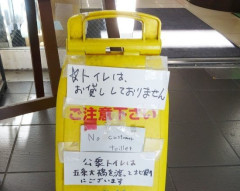 トイレは、
お貸ししておりません
ご注意下さい
No
toilet
公衆トイレは
五条大橋を渡って北側
にございます